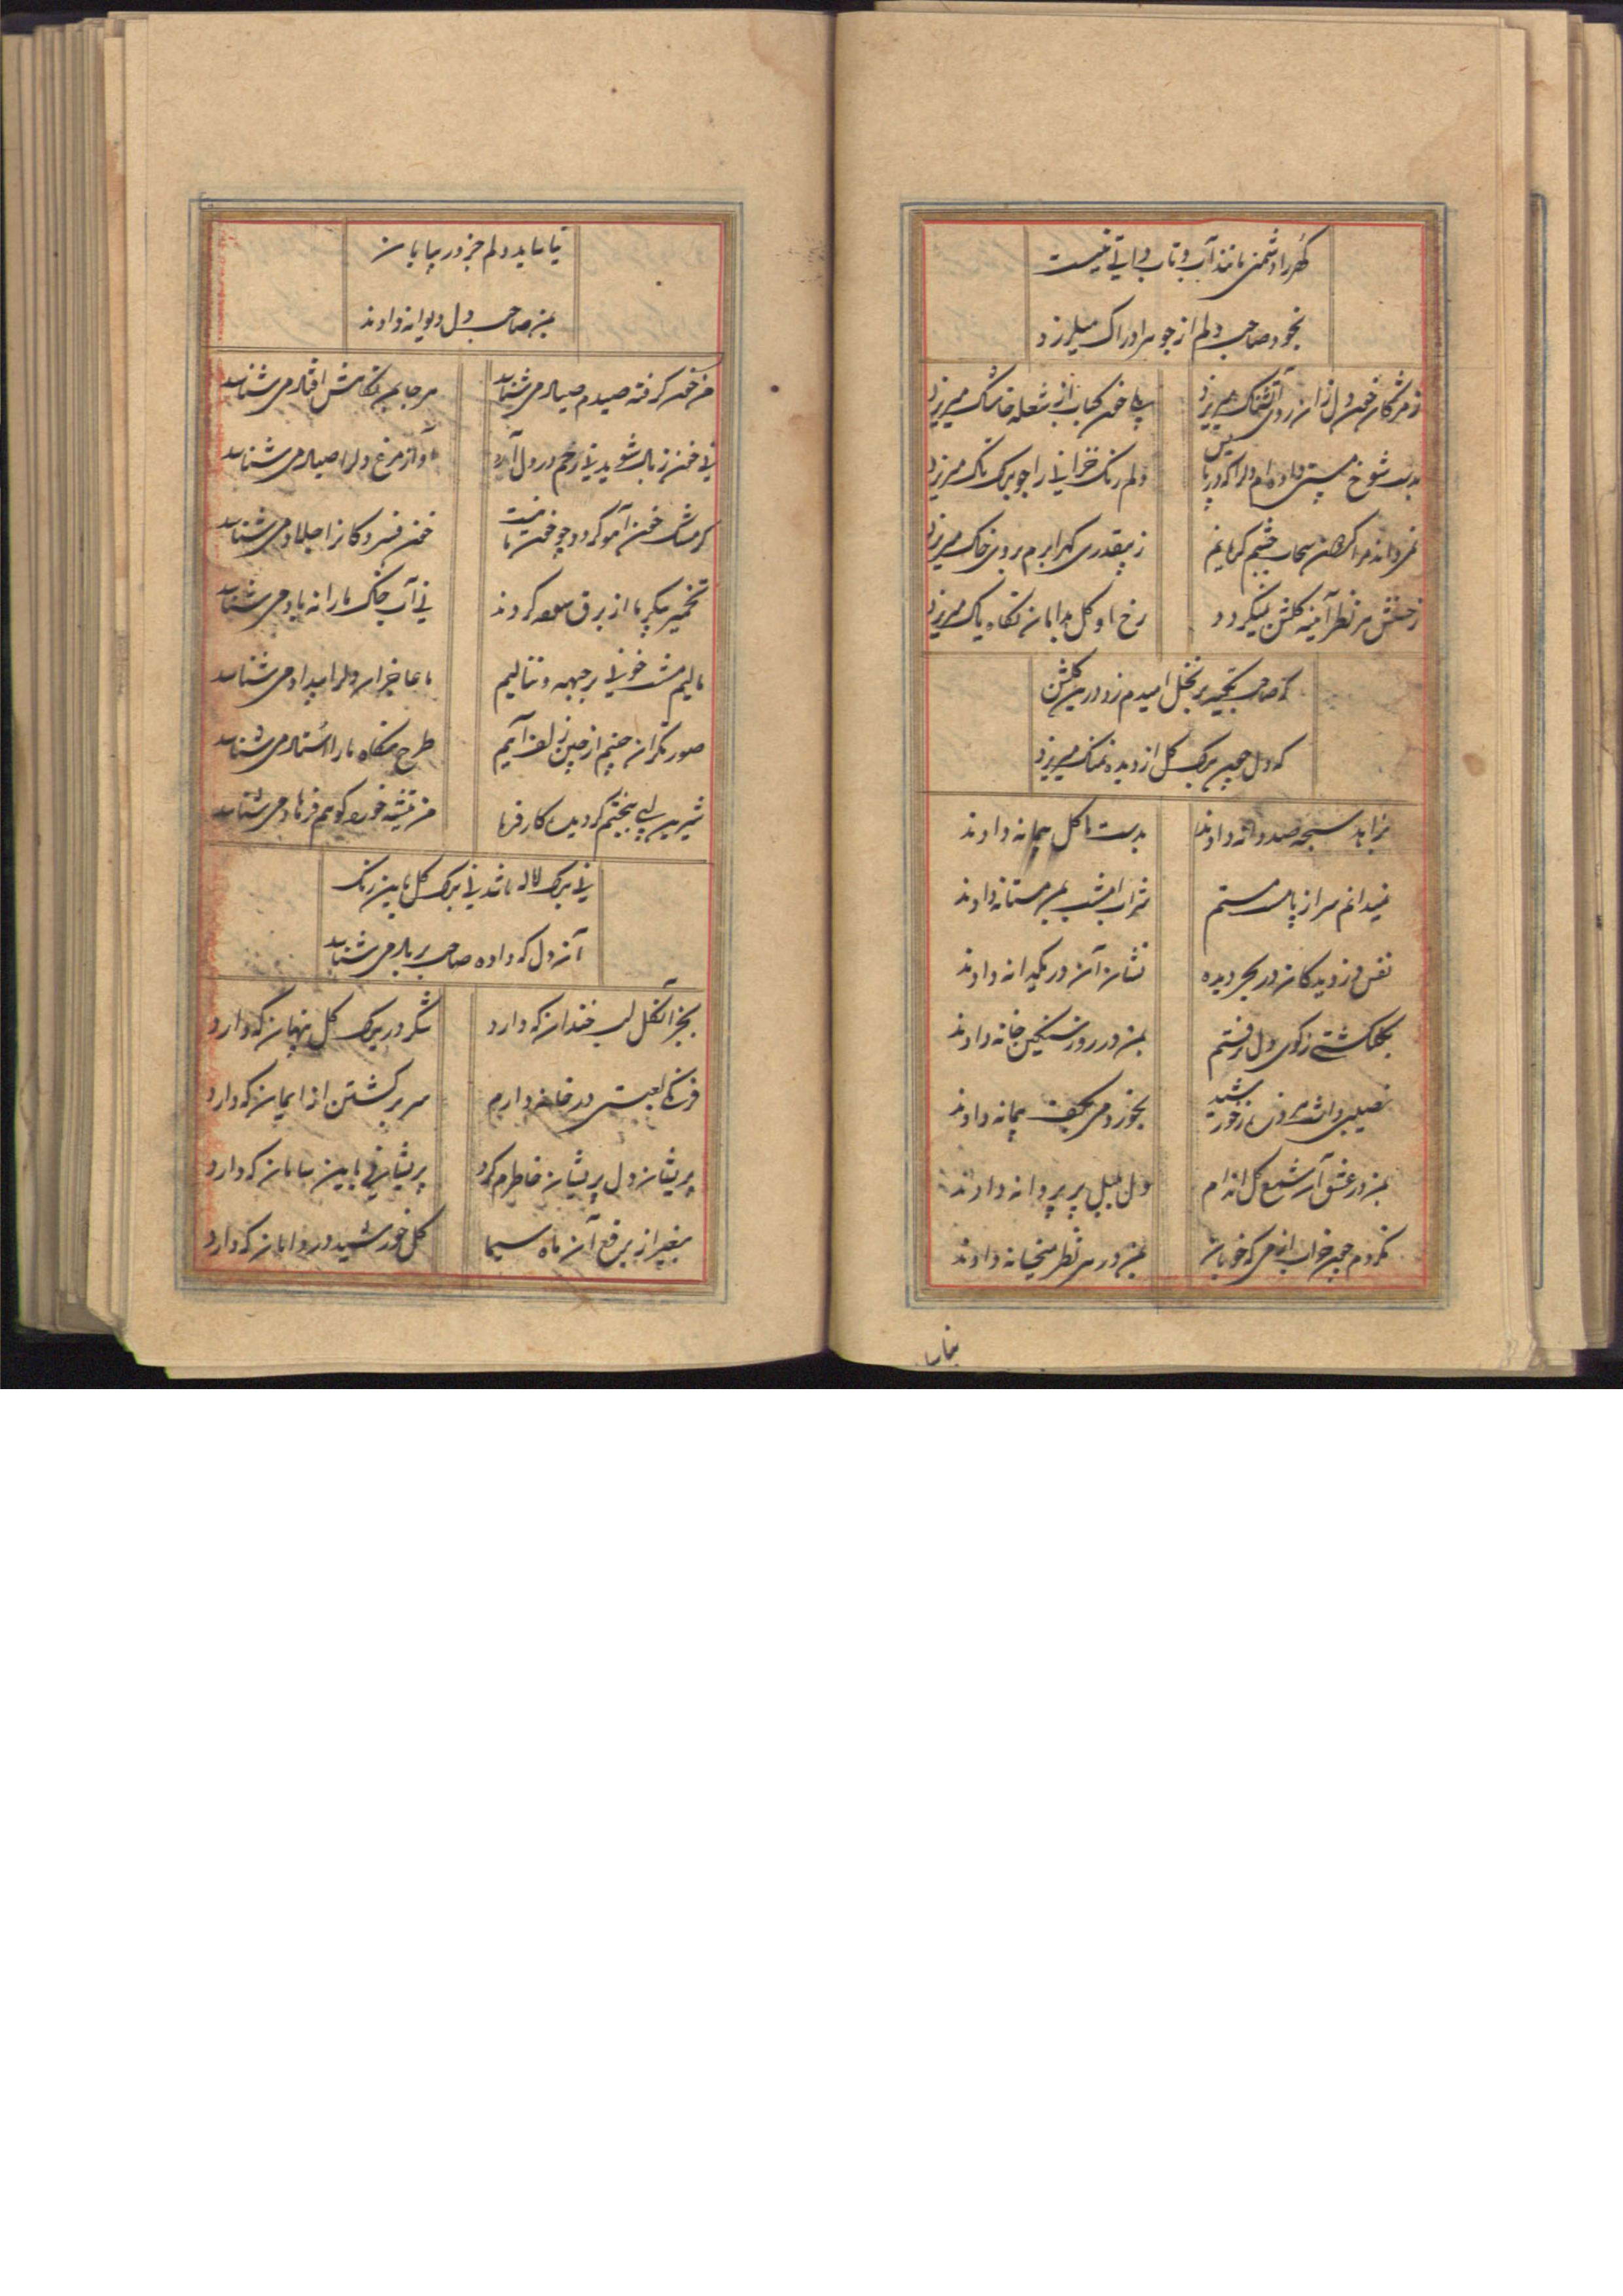 گهر را دشمنی مانند آب و تاب ذاتی نیست
بخود صاحب دلم از جوهر ادراک میلرزد
ز مژگان خون دل زان روی آتشناک میریزد
بلی خون کباب از شعله خاشاک میریزد
بدست شوخ مستی داده ام دل را که در پایش
دلم رنگ خزانی را چو برگ تاک میریزد
نمیداند مرا گر چون سحاب چشم گریانم
ز بیقدری گهر ابرم بروی خاک میریزد
ز حسنش هر نظر آینه گلشن نمیگردد
رخ او گل بدامان نگاه پاک میریزد
که صاحب تکیه بر نخل امیدم زد درین گلشن
که دل چون برگ گل از دیده نمناک میریزد
بزاهد سبحه صد دانه دادند
بدست ما گل پیمانه دادند
نمیدانم سر از پا مست مستم
شراب امشب بمن مستانه دادند
نفس دزدیدگان در بحر دیده
نشان آن در یکدانه دادند
بگلگشتی ز کوی دل نرفتم
بمن در روز سنگین خانه دادند
نصیبی داشت ذره از خورشید
بخور می بکف پیمانه دادند
بمن در عشق آن شمع گل اندام
دل بلبل پر پروانه دادند
نکردم چون خراب از می که خوبان
بمن در هر نظر میخانه دادند
بیابان
نیاساید دلم جز در بیابان
بمن صاحب دل دیوانه دادند
من خو گرفته صیدم صیاد می شناسد
هر جا بمن نگاهش افتاد می شناسد
نی خون زبال شوید نی زخم در دل آید
آواز مرغ دل را صیاد می شناسد
گر مشک خون آهو گردد چو خون ما نیست
خون فسردگان را جلاد می شناسد
تخمیر پیکر ما از برق شعله کردند
نی آب خاک ما را نه باد می شناسد
مالیم مشت خونی بر جبهه و ننالیم
ما عاجزان دل را بیداد می شناسد
صورتگران چشم از چین زلف آیم
طرح نگاه ما را استاد می شناسد
شیرین لبی بچشم گردید کار فرما
من تیشه خورده کوهم فرهاد می شناسد
نی برگ لاله باشد نی برگ گل باین رنگ
آن دل که داده صاحب بر باد می شناسد
بجز آن گل لب خندان که دارد
شکر در برگ گل پنهان که دارد
فرنگی لعبتی در خانه دارم
سر برگشتن از ایمان که دارد
پریشان دل پریشان خاطرم کرد
پریشانی باین سامان که دارد
بغیر از برقع آن ماه سیما
گل خورشید در دامان که دارد